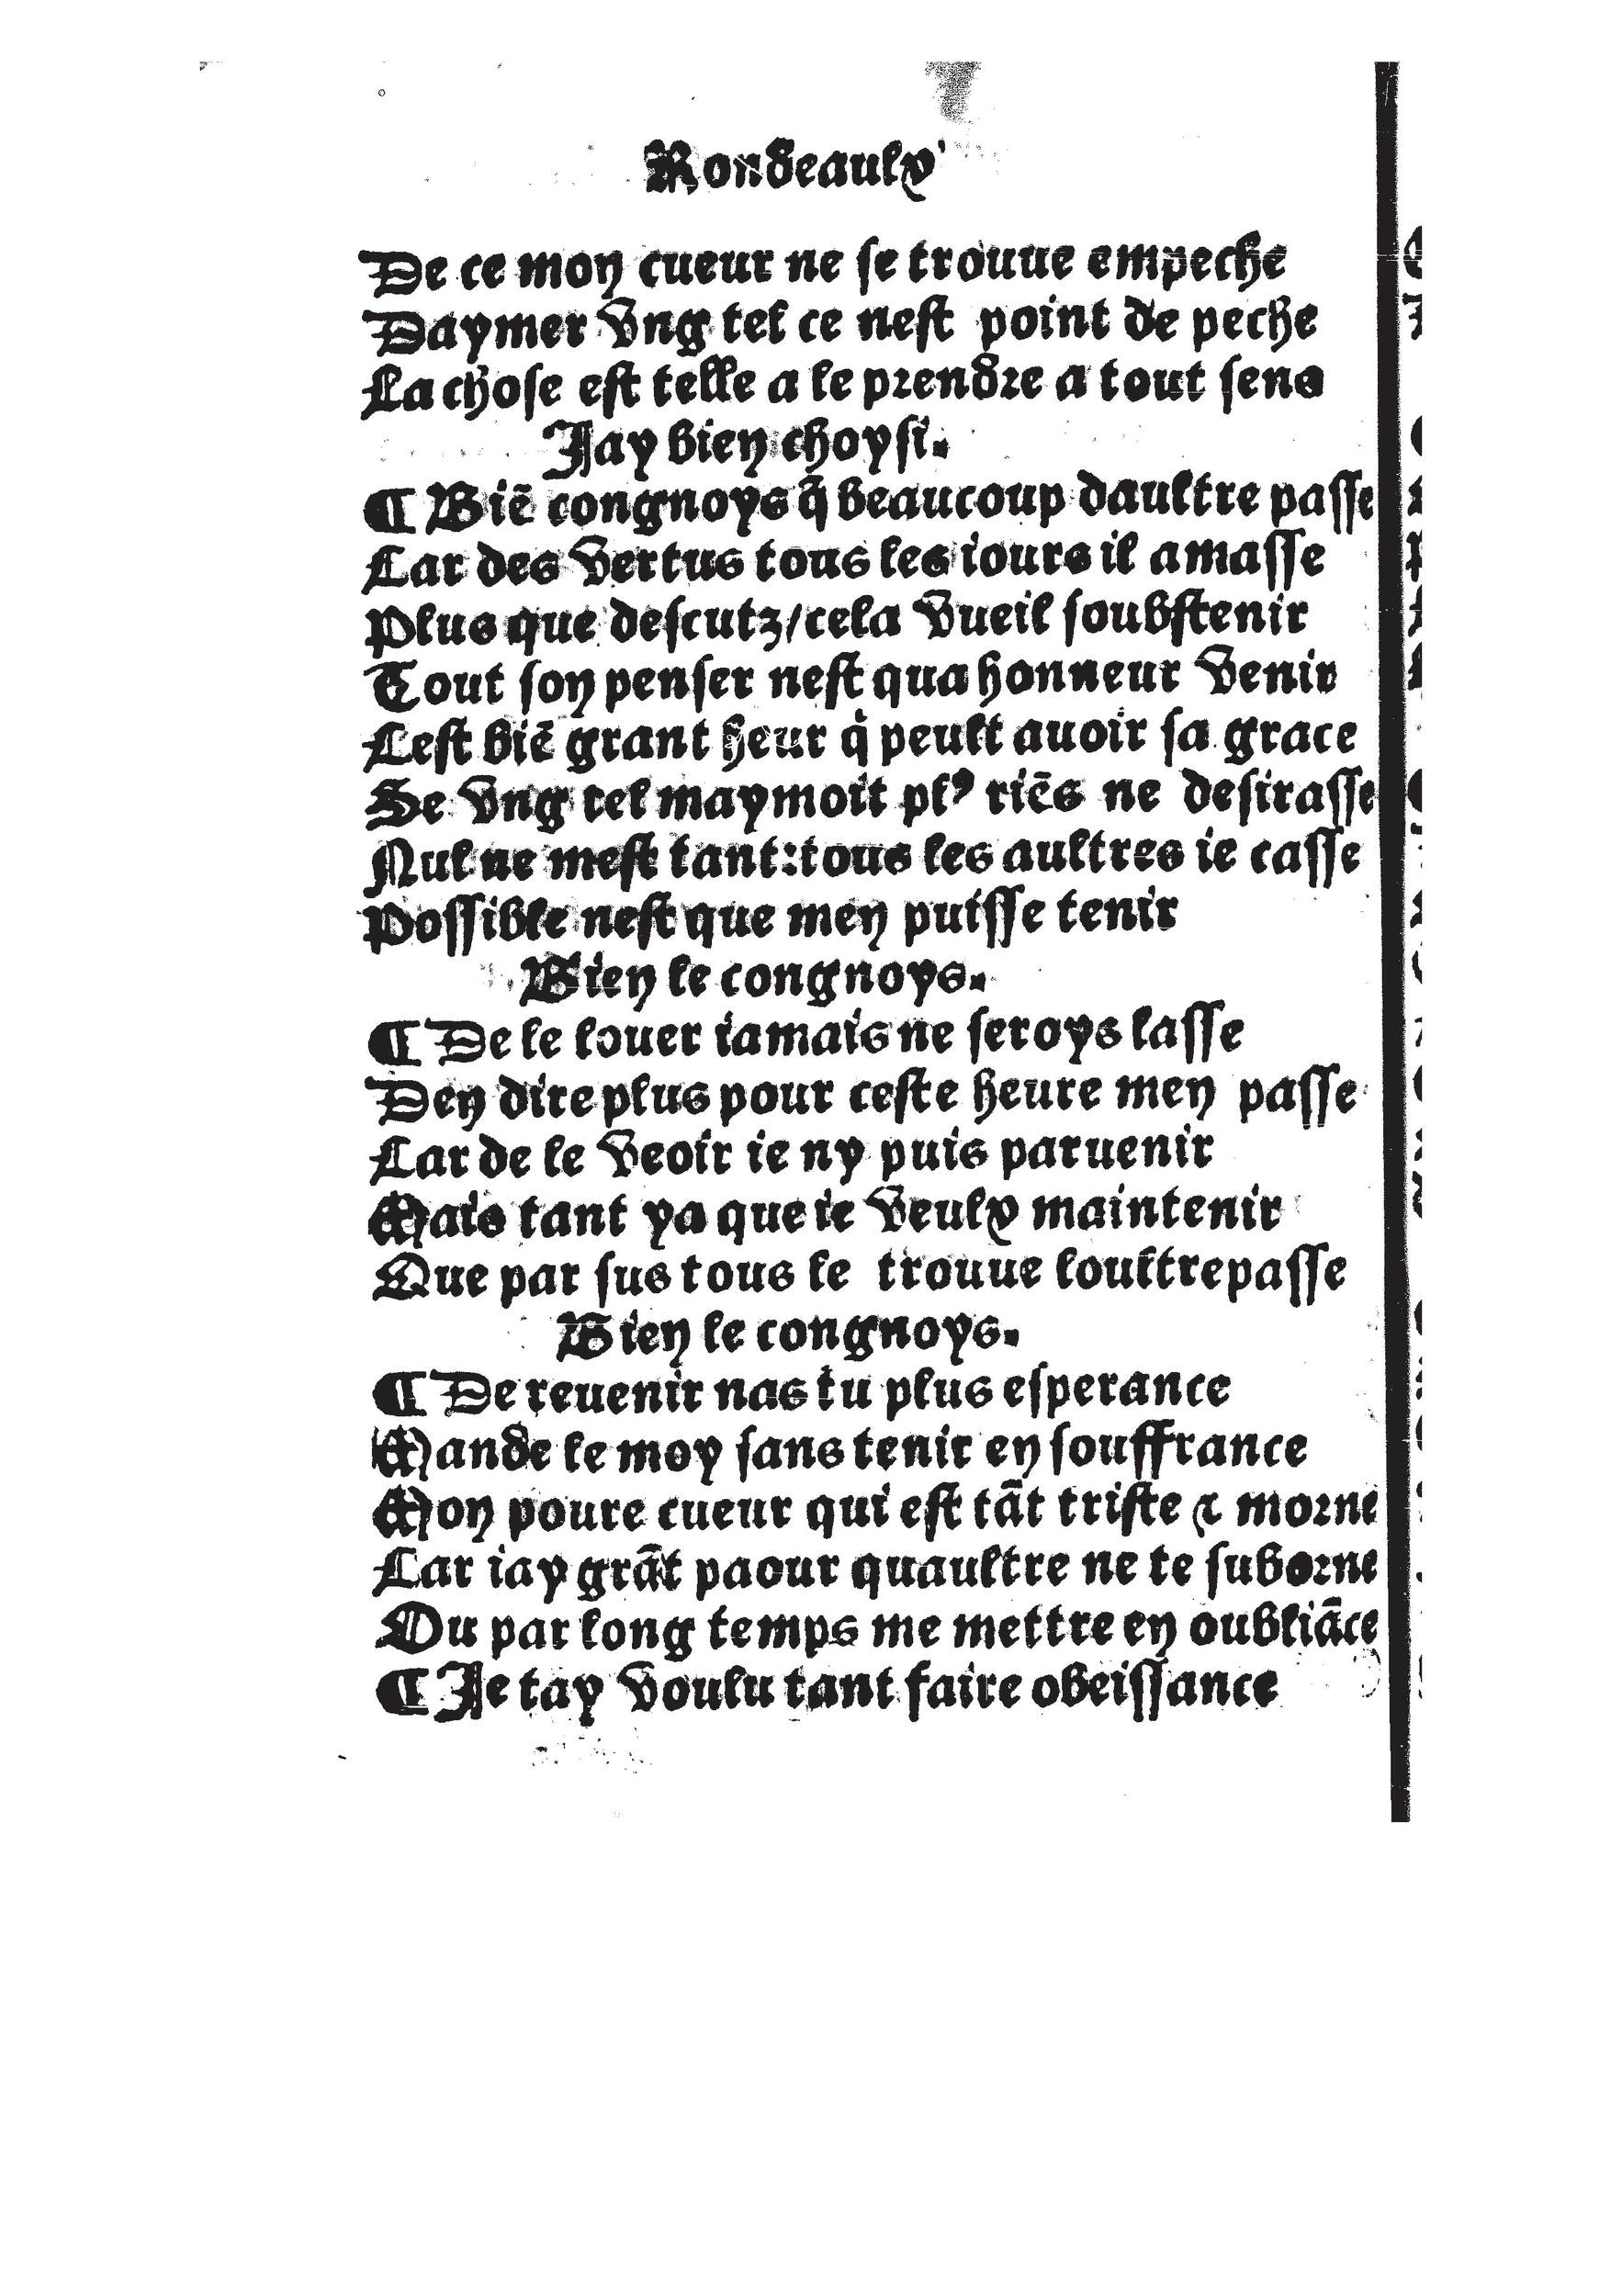 Rondeaulx
De ce mon cueur ne se trouue empeche
Daymer vng tel ce nest point de peche
La chose est telle a le prendre a tout sens
Jay bien choysi.
¶ Biẽ congnoys q̃ beaucoup daultre passe
Car des vertus tous les iours il amasse
Plus que descutz/cela vueil soubstenir
Tout son penser nest qua honneur venir
Cest biẽ grant heur q̇ peult auoir sa grace
Se vng tel maymoit plꝰ riẽs ne desirasse
Nul ne mest tant:tous les aultres ie casse
Possible nest que men puisse tenir
Bien le congnoys.
¶ De le louer iamais ne seroys lasse
Den dire plus pour ceste heure men passe
Car de le veoir ie ny puis paruenir
Mais tant ya que ie veulx maintenir
Que par sus tous le trouue loultrepasse
Bien le congnoys.
¶ De reuenir nas tu plus esperance
Mande le moy sans tenir en souffrance
Mon poure cueur qui est tãt triste ⁊ morne
Car iay grãt paour quaultre ne te suborne
Ou par long temps me mettre en oubliãce
¶ Je tay voulu tant faire obeissance